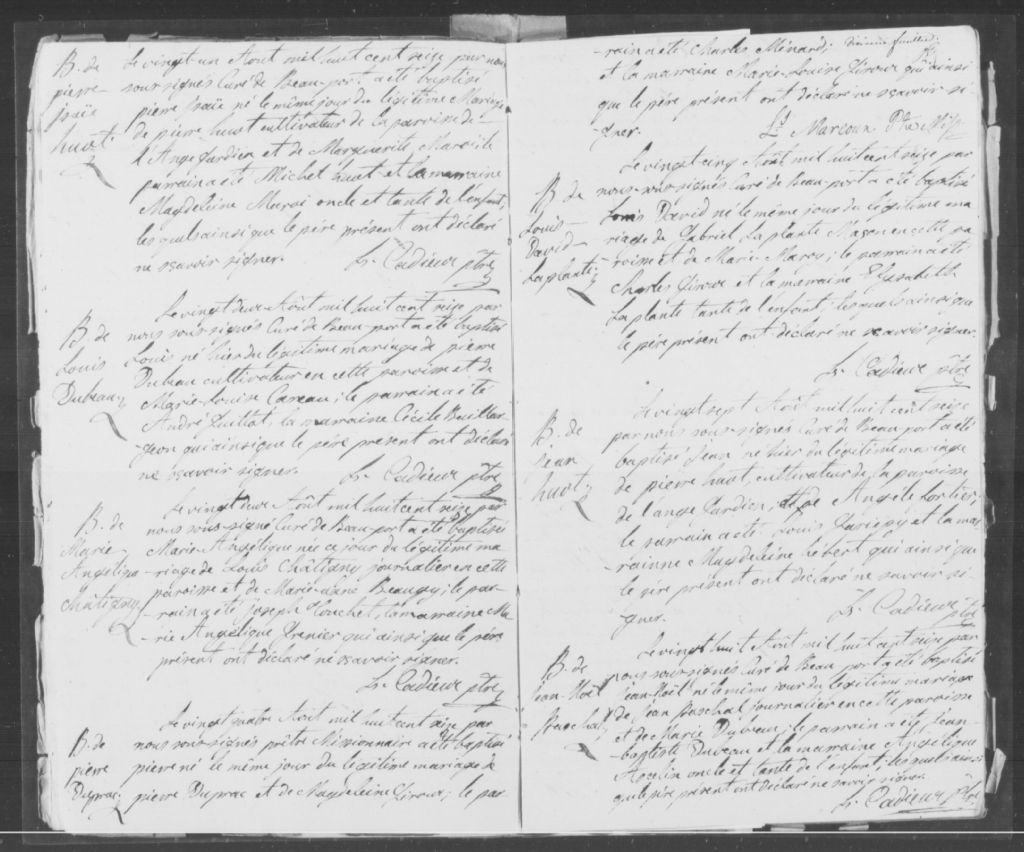 B. de
pierre
isaïe
huot
Le vingt-un Aout mil huit cent seize par nous
sous-signés Curé de Beau-port a été baptisé
pierre isaïe né le même jour du légitime Mariage
de pierre huot cultivateur de la paroisse de
l'Ange Gardien et de Marguerite Maroi; le
parrain a été Michel huot et la marraine
Magdeleine Maroi oncle et tante de l'enfant,
les quels ainsi que le père présent ont déclaré
ne sçavoir signer.
Cadieux ptre
B. de
Louis
Dubeau
Le vingt deux Août mil huit cent seize par
nous sous-signés Curé de Beau-port a été baptisé
Louis né hier du légitime mariage de pierre
Dubeau cultivateur en cette paroisse et de
Marie-Louise Careau; le parrain a été
André la marraine Cécile Baillar-
geon qui ainsi que le père present ont déclaré
ne sçavoir signer.
Cadieux ptre
B. de
Marie
Angélique
Châtigny
Le vingt deux Août mil huit cent seize par
nous sous-signé Curé de Beau-port a été baptisée
Marie-Angélique née ce jour du légitime ma
-riage de Louis Châtigny journalier en cette
paroisse et de Marie-Anne Beaugy; le par-
-rain a été joseph la marraine Ma
-rie Angélique Grenier qui ainsi que le père
présent ont déclaré ne sçavoir signer.
Cadieux ptre
B. de
pierre
Duprac
Le vingt quatre Août mil huit cent seize par
nous sous-signés prêtre Missionnaire a été baptisé
pierre né ce même jour du légitime mariage de
pierre Duprac et de Magdeleine Giroux; le par
-rain a été Charles Ménard;
et la marraine Marie-Louise Giroux qui ainsi
que le père présent ont déclaré ne sçavoir si-
-gner.
Marcoux Ptre Miss.
B. de
Louis
David
La plante
Le vingt cinq Août mil huit cent seize par
nous sous-signés Curé de Beau-port a été baptisé
Louis David né le même jour du légitime ma
riage de Gabriel La plante Maçon en cette pa
roisse et de Marie Marcou; le parrain a été
Charles Giroux et la marraine Elysabeth
La plante tante de l'enfant; lesquels ainsi que
le père présent ont déclaré ne sçavoir signer.
Cadieux ptre
B. de
jean
huot
Le vingt sept Août mil huit cent seize
par nous sous-signés Curé de Beau-port a été
baptisé jean né hier du légitime mariage
de pierre huot, cultivateur de la paroisse
de l'ange Gardien, et de Angele Fortier;
le parrain a été Louis Gariepy et la mar
rainne Magdeleine hébert qui ainsi que
le père présent ont déclaré ne sçavoir si-
gner.
Cadieux ptre
B. de
jean Noël
Paschal
Le vingt huit Août mil huit cent seize par
nous sous-signés Curé de Beau port a été baptisé
jean-Noël né le même jour du légitime mariage
de jean Paschal journalier en cette paroisse
et de Marie Dubeau; le parrain a été jean
baptiste Dubeau et la marraine Angélique
Asselin oncle et tante de l'enfant; les quels ainsi
que le père présent ont déclaré ne savoir signer.
Cadieux Ptre